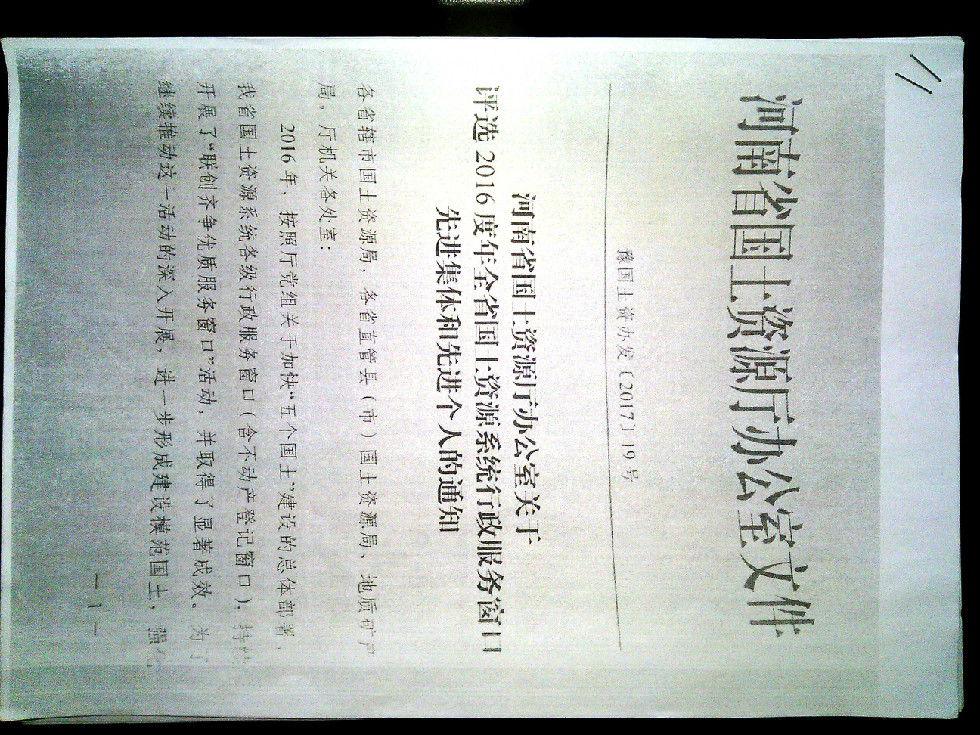 河南省国土资源厅办公室文件
豫国土资办发〔2017〕19号
河南省国土资源厅办公室关于
评选2016度年全省国土资源系统行政服务窗口
先进集体和先进个人的通知
各省辖市国土资源局，各省直管县（市）国土资源局、地质矿产
局，厅机关各处室：
2016年，按照厅党组关于加快“五个国土”建设的总体部署，
我省国土资源系统各级行政服务窗口（含不动产登记窗口），持续
开展了“联创齐争优质服务窗口”活动，并取得了显著成效。为了
继续推动这一活动的深入开展，进一步形成建设模范国土、强化
— 1 —